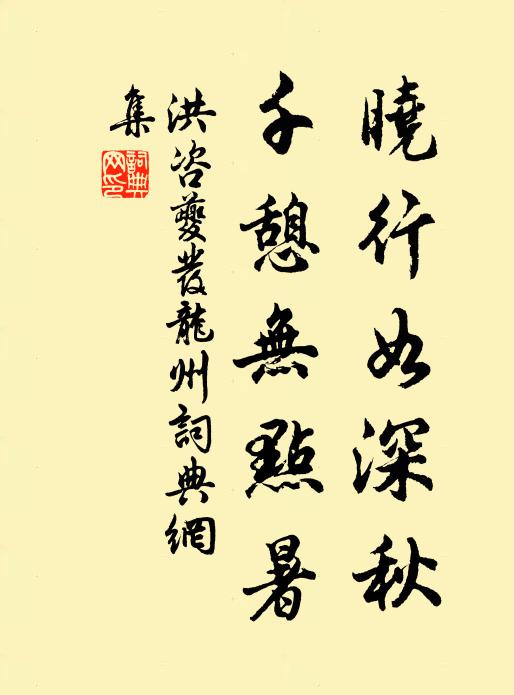 曉行如深秋
千憩無點暑
洪咨夔發龍州詞典網
集
詞典
网印